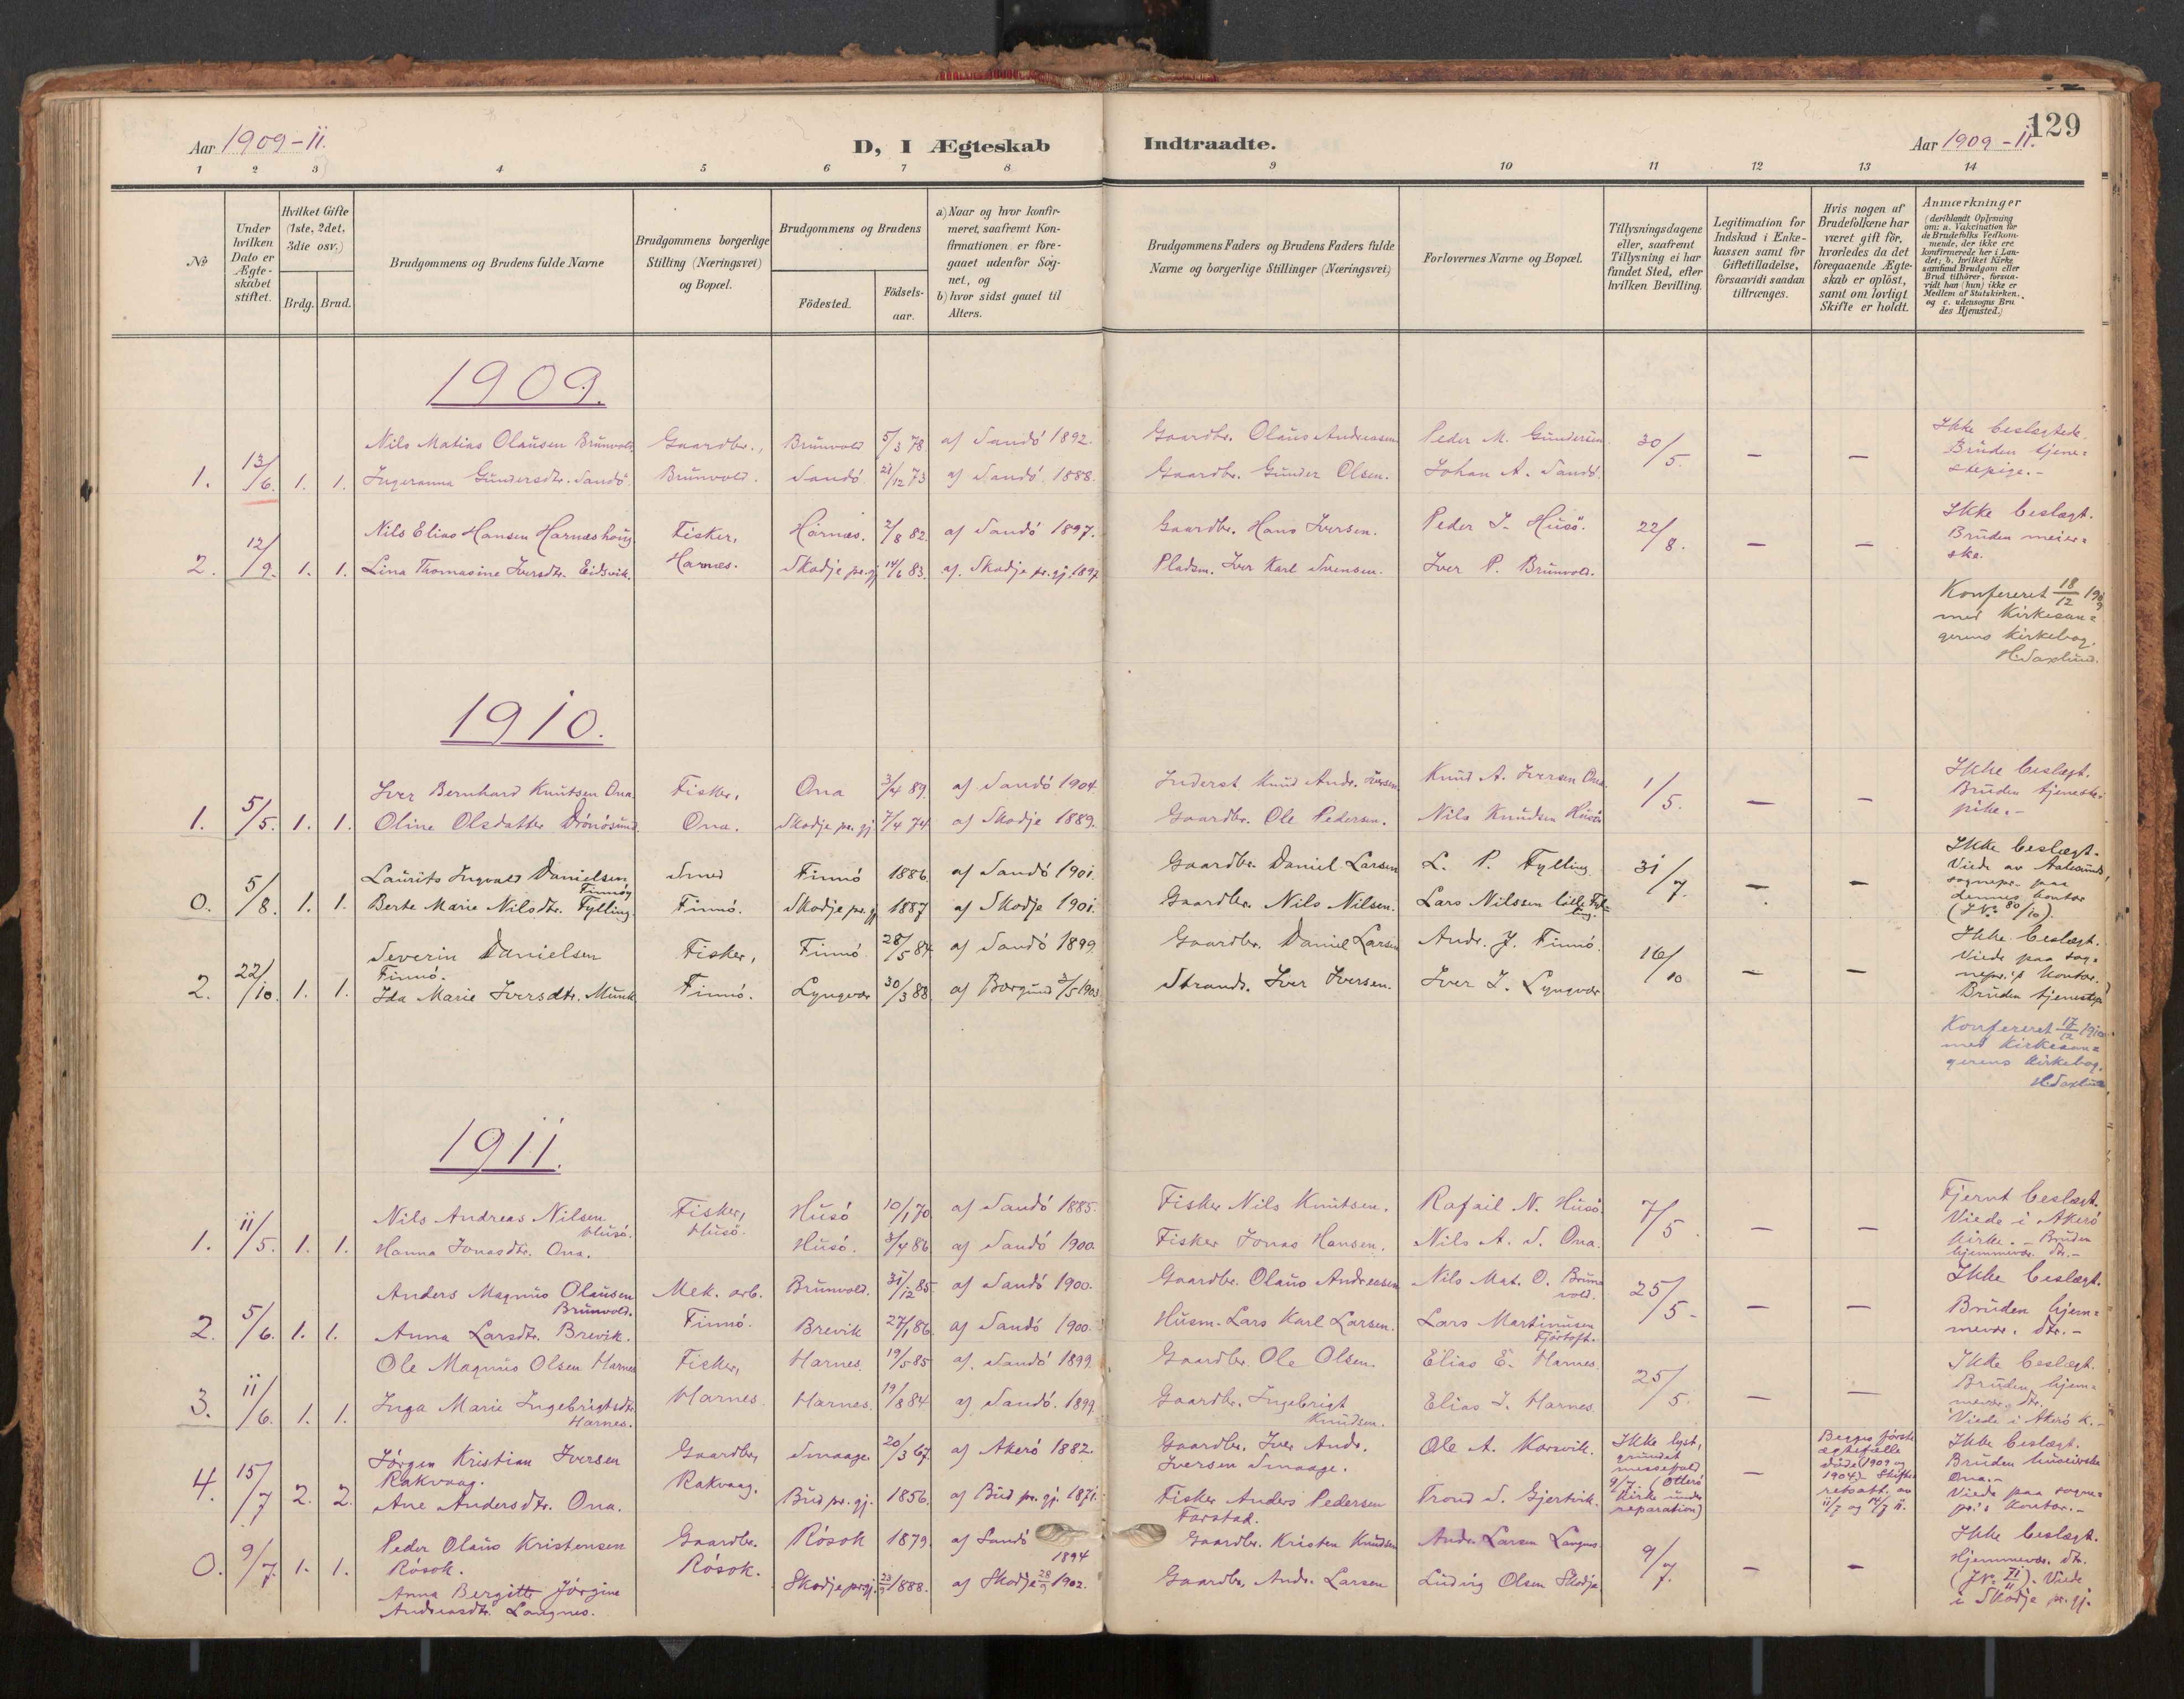 Aar 1909-11.
D, I Ægteskab
Indtraadte.
Aar 1909-11.
129
1 2 3 4 5 6 7 8 9 10 11 12 13 14
No
Under hvilken Dato er Ægte-skabet stiftet.
Hvilket Gifte (1ste, 2det, 3die osv.)
Brdg. Brud.
Brudgommens og Brudens fulde Navne
Brudgommens borgerlige Stilling (Næringsvei) og Bopæl.
Brudgommens og Brudens
Födested.
Födsels-aar.
a) Naar og hvor konfir-meret, saafremt Kon-firmationen er fore-gaaet udenfor Sog-net, og
b) hvor sidst gaaet til Alters.
Brudgommens Faders og Brudens Faders fulde Navne og borgerlige Stillinger (Næringsvei)
Forlovernes Navne og Bopæl.
Tillysningsdagene eller, saafremt Tillysning ei har fundet Sted, efter hvilken Bevilling.
Legitimation for Indskud i Enke-kassen samt for Giftetilladelse, forsaavidt saadan tiltrænges.
Hvis nogen af Brudefolkene har været gift för, hvorledes da det foregaaende Ægte-skab er oplöst, samt om lovligt Skifte er holdt.
Anmærkninger
(deriblandt Oplysning om: a. Vakcination for de Brudefolks Vedkom-mende, der ikke ere konfirmerede her i Lan-det; b. hvilket Kirke samfund Brudgom eller Brud tilhörer, forsaa-vidt han (hun) ikke er Medlem af Statskirken, og c. udensogns Bru des Hjemsted.)
1909.
Nils Matias Olausen Brunvold. Gaardbr., Brunvold 5/3 78. af Sandö 1892. Gaardbr. Olaus Andreasen Peder M. Gundersen 30/5. Ikke beslegtede.
1. 13/6. 1. 1. Ingeranna Gundersdtr. Sandö Brunvold. Sandö 21/12 73 af Sandö 1888. Gaardbr. Gunder Olsen. Johan A. Sandö. — — Bruden tjene=
stepige.-
Nils Elias Hansen Harnæshoug Fisker, Harnæs. 2/8 82. af Sandö 1897. Gaardbr. Hans Iversen. Peder J. Husö. 22/8. Ikke beslægt.
2. 12/9. 1. 1. Lina Thomasine Iversdtr. Eidsvik. Harnæs. Skodje pr.gj. 14/6 83. af. Skodje pr.gj. 1897 Pladsm. Iver Karl Svensen. Iver P. Brunvold. — — Bruden meier=
ske.
Konfereret 18/12 1909
med Kirkesan=
gerens Kirkebog.
H. Saxlund.
1910.
Iver Bernhard Knutsen Ona. Fisker, Ona 3/4 89. af Sandö 1904. Inderst Knud Andr. Iversen Knud A. Iversen Ona 1/5. Ikke beslægt.
1. 5/5. 1. 1. Oline Olsdatter Drönösund. Ona. Skodje pr.gj. 7/4 74. af Skodje 1889. Gaardbr. Ole Pedersen. Nils Knudsen Husö — — Bruden tjeneste-
pike.-
Laurits Ingvald Danielsen Finnöy Smed Finnö 1886. af Sandö 1901. Gaardbr. Daniel Larsen L. P. Fylling 31/7. Ikke beslægt.
0. 5/8. 1. 1. Berte Marie Nilsdtr. Fylling. Finnö. Skodje pr.gj 1887 af Skodje 1901. Gaardbr. Nils Nilsen. Lars Nilssen lille Fyl=
ling. — — Viede av Aalesunds
sognepr. paa
dennes kontor
(J.No 80/10).
Severin Danielsen Finnö. Fisker, Finnö 28/5 84. af Sandö 1899. Gaardbr. Daniel Larsen Andr. J. Finnö. 16/10 Ikke beslægt.
2. 22/10. 1. 1. Ida Marie Iversdtr. Munk Finnö. Lyngvær 30/3 88. af Borgund 3/5 1903 Strands. Iver Iversen. Iver I. Lyngvær — — Viede paa sog=
nepr.'s kontor.
Bruden tjenestep.
Konfereret 17/12 1910
med Kirkesan=
gerens Kirkebog.
H. Saxlund
1911.
Nils Andreas Nilsen Husö. Fisker, Husö 10/1 70. af Sandö 1885. Fisker Nils Knutsen. Rafail N. Husö. 7/5. Fjernt beslægt.
1. 11/5. 1. 1. Hanna Jonasdtr. Ona. Husö. Husö. 3/4 86 af Sandö 1900. Fisker Jonas Hansen. Nils A. S. Ona. — — Viede i Akerö
Kirke. - Bruden
hjemmevær. dtr.-
Anders Magnus Olausen Brunvold. Mek. arb. Brunvold. 31/12 85. af Sandö 1900. Gaardbr. Olaus Andreasen Nils Mat. O. Brun=
vold. 25/5 - Ikke beslægt.
2. 5/6. 1. 1. Anna Larsdtr. Brevik. Finnö. Brevik 27/1 86. af Sandö 1900. Husm. Lars Karl Larsen. Lars Martinusen Fjörtoft. — — Bruden hjem=
mevær. dtr.-
Ole Magnus Olsen Harnes Fisker, Harnes. 19/5 85 af. Sandö 1899. Gaardbr. Ole Olsen. Elias E. Harnes. 25/5. Ikke beslægt.
3. 11/6. 1. 1. Inga Marie Ingebrigtsdtr. Harnes. Harnes Harnes. 19/8 84 af Sandö. 1899. Gaardbr. Ingebrigt Knudsen. Elias I. Harnes. — — Bruden hjem=
mevær. dtr.
Viede i Akerö K.-
Jörgen Kristian Iversen Rakvaag. Gaardbr, Smaage 20/3 67. af Akerö 1882. Gaardbr. Iver Andr. Iversen Smaage. Ole A. Korsvik. Ikke lyst,
grundet
messefald
9/7 (Otterö
Kirke under
reparation) — Begges förste
ægtefælle
döde (1909 og
1904). Skifte-
retsatt. av
11/7 og 14/7 11. Ikke beslægt.
4. 15/7 2. 2. Ane Andersdtr. Ona. Rakvaag. Bud pr. gj. 1856. af Bud pr. gj. 1871. Fisker Anders Pedersen Farstad. Trond S. Gjertvik. Bruden
Ona.-
Viede paa sogne=
pr.'s kontor.-
Peder Olaus Kristensen Rösok. Gaardbr. Rösok 1879. af Sandö 1894 Gaardbr. Kristen Knudsen Andr. Larsen Langnes 9/7. Ikke beslægt.
0. 9/7. 1. 1. Anna Bergitte Jörgine Andreasdtr. Langnes. Rösok. Skodje pr.gj. 23/9 1888. af Skodje 28/9 1902. Gaardbr. Andr. Larsen Ludvig Olsen Skodje — — Hjemmevær. dtr.
Viede
i Skodje pr. gj.